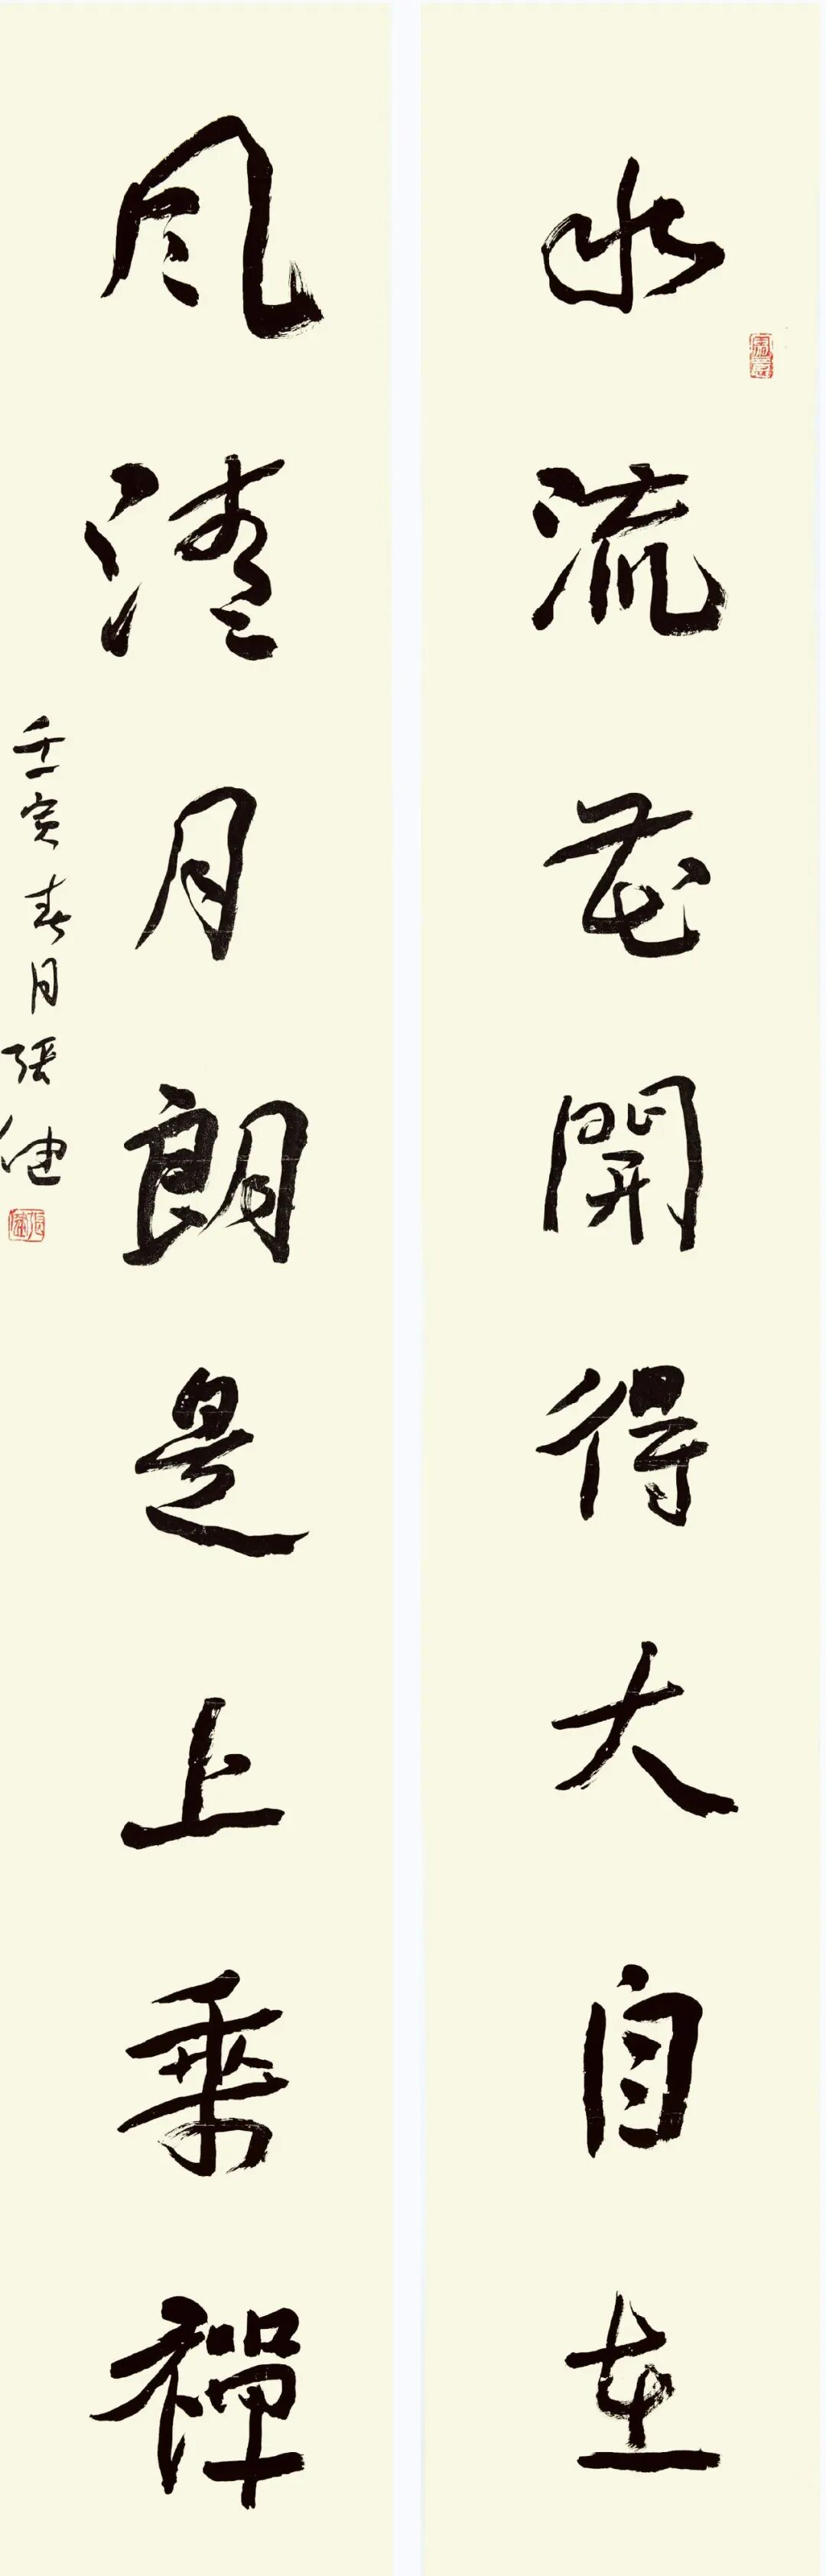 水流花開得大自在
風清月朗是上乘禪
壬寅春月張健